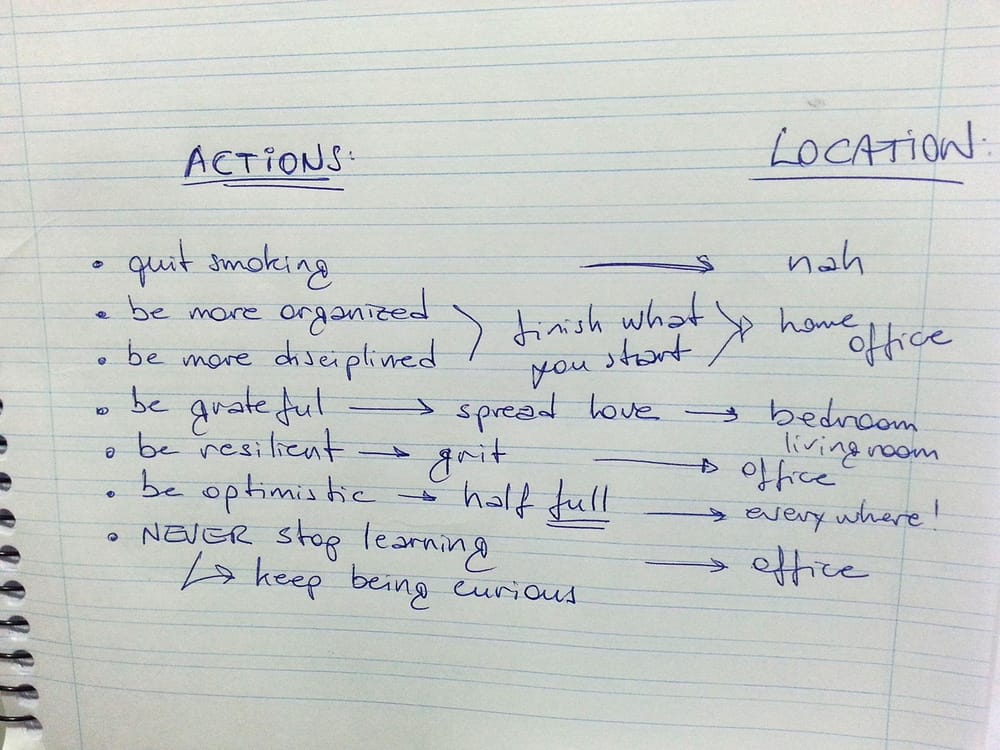 ACTIONS: LOCATION:
• quit smoking → nah
• be more organized
• be more disciplined
finish what
you start
home
office
• be grateful → spread love → bedroom
living room
• be resilient → grit → office
• be optimistic → half full → everywhere!
• NEVER stop learning → office
↳ keep being curious